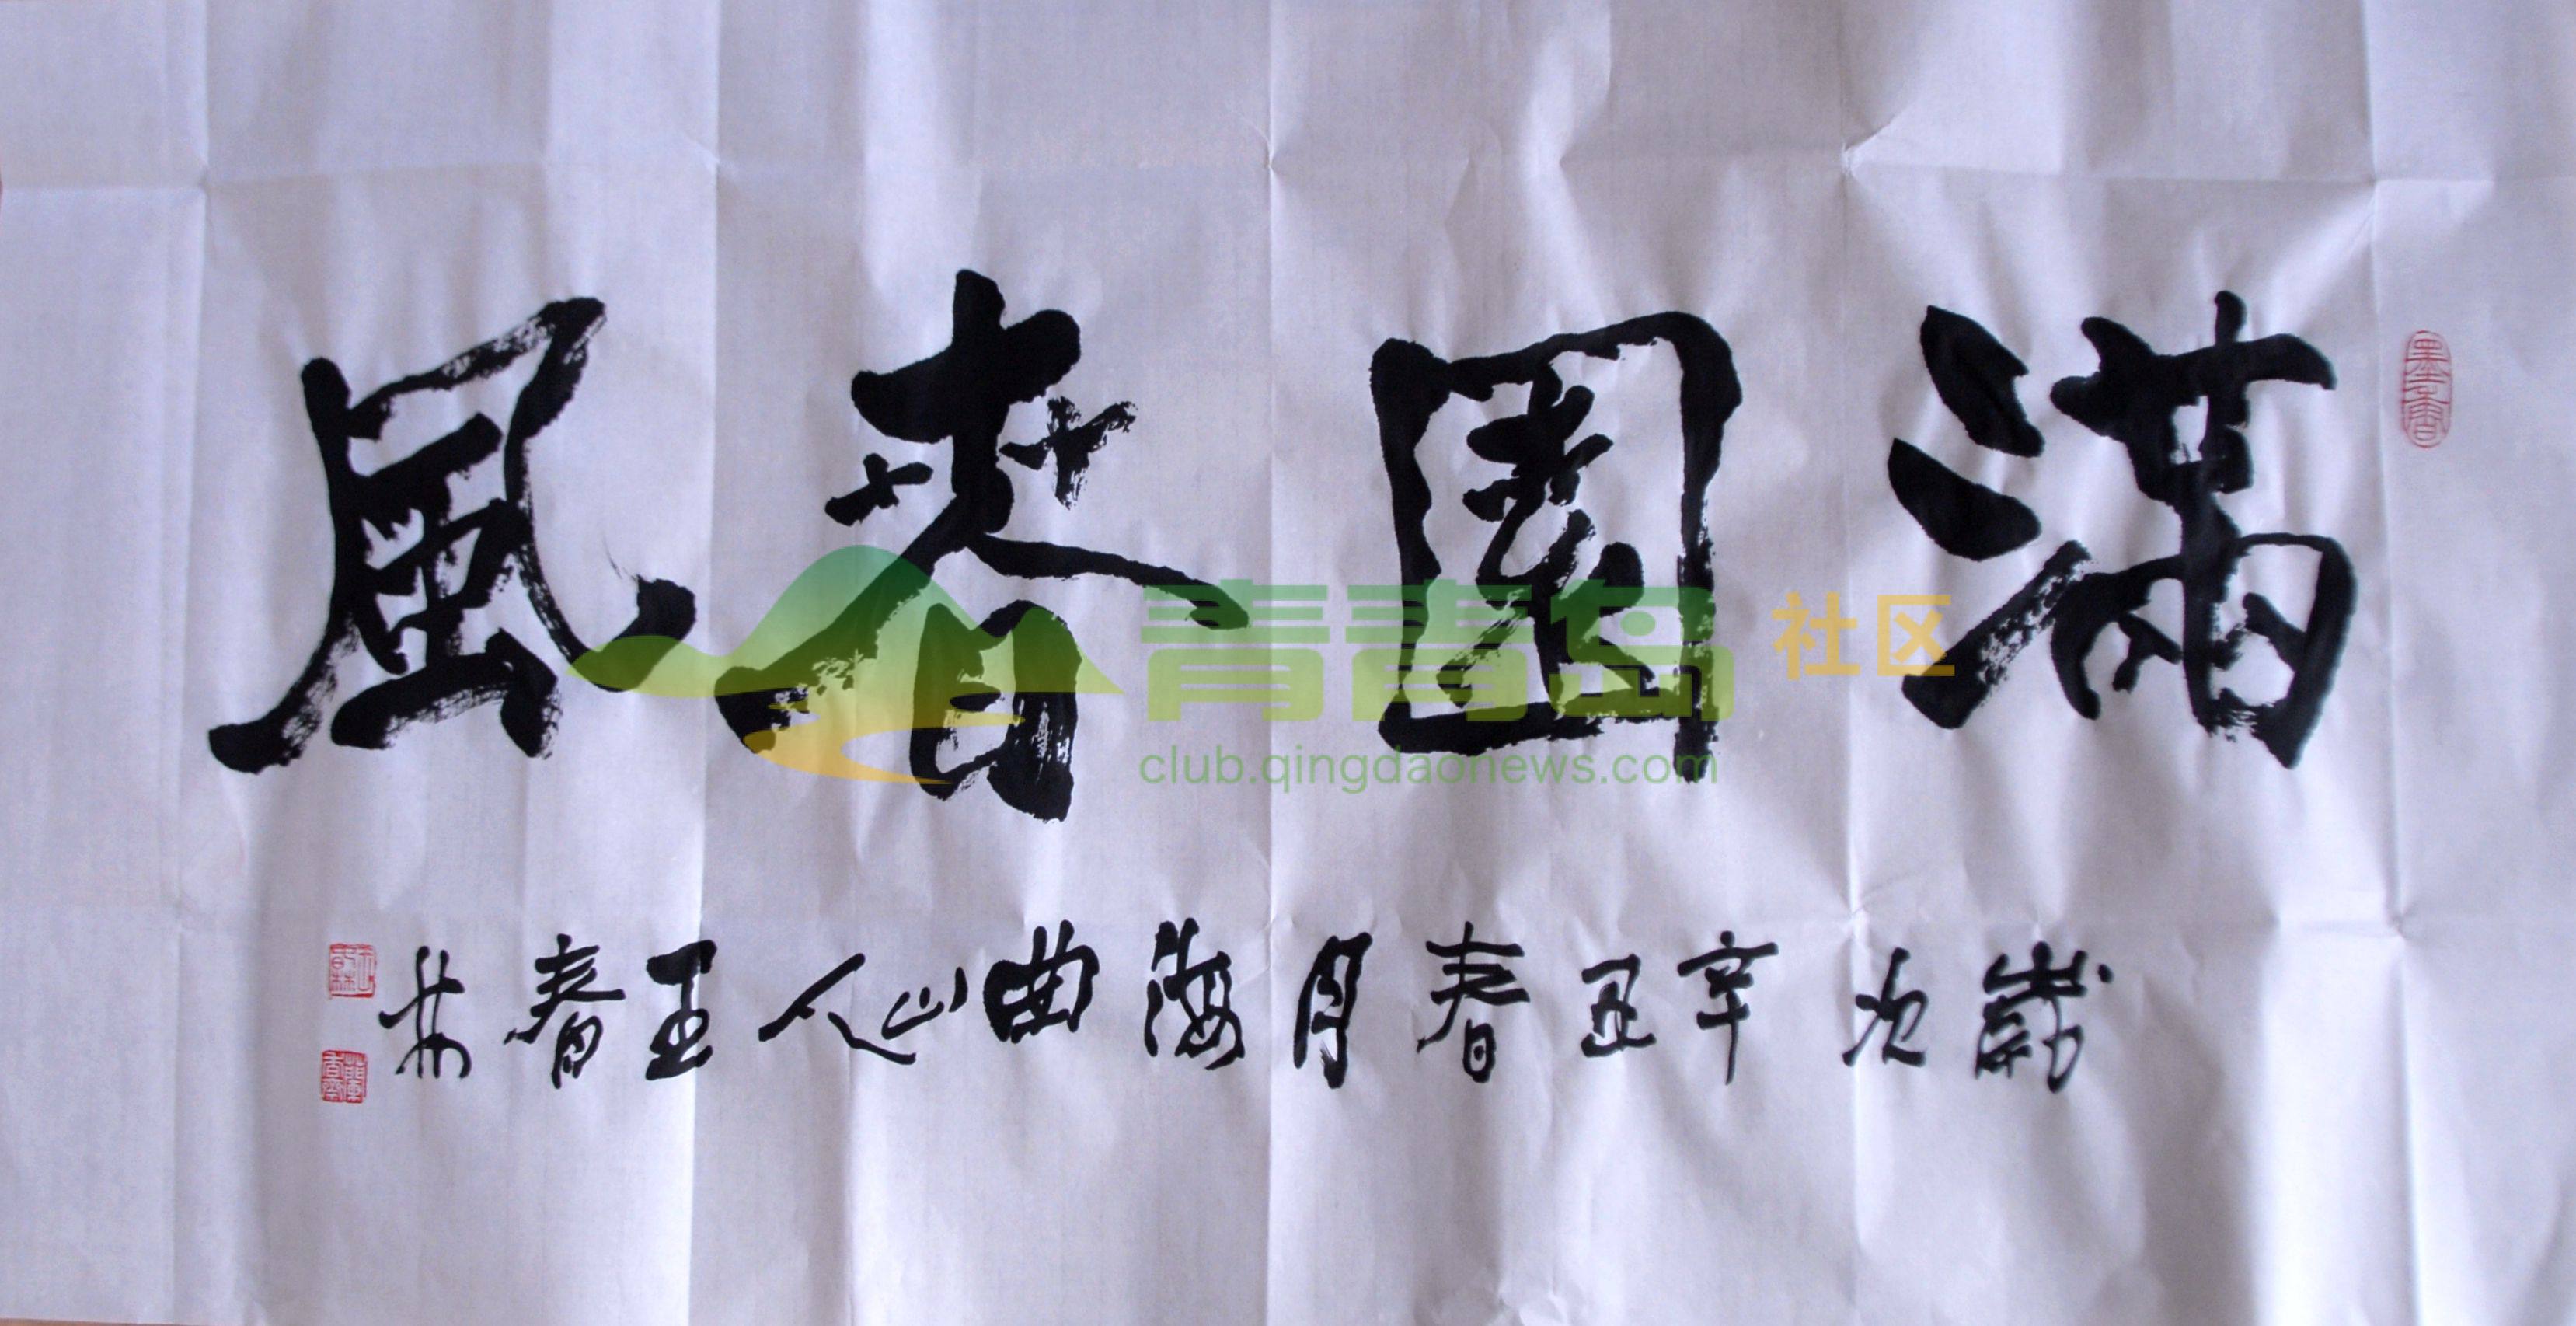 滿園春風
歲次辛丑春月海曲山人王春林
墨香
青青岛社区
club.qingdaonews.com